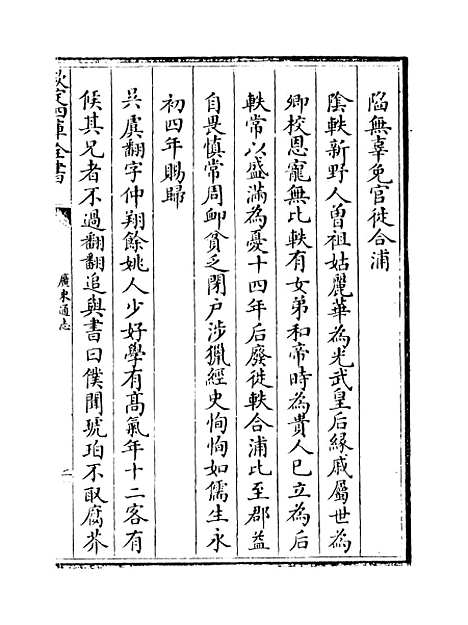 陷無辜免官徙合浦
隂軼新野人曽祖姑麗華為光武皇后縁戚屬世為
卿校恩寵無比軼有女弟和帝時為貴人已立為后
軼常以盛滿為憂十四年后廢徙軼合浦比至郡益
自畏慎常周䘏貧乏閉户涉獵經史恂恂如儒生永
初四年賜歸
吳虞翻字仲翔餘姚人少好學有髙氣年十二客有
候其兄者不過翻翻追與書曰僕聞琥珀不取腐芥
欽定四庫全書
廣東通志
二